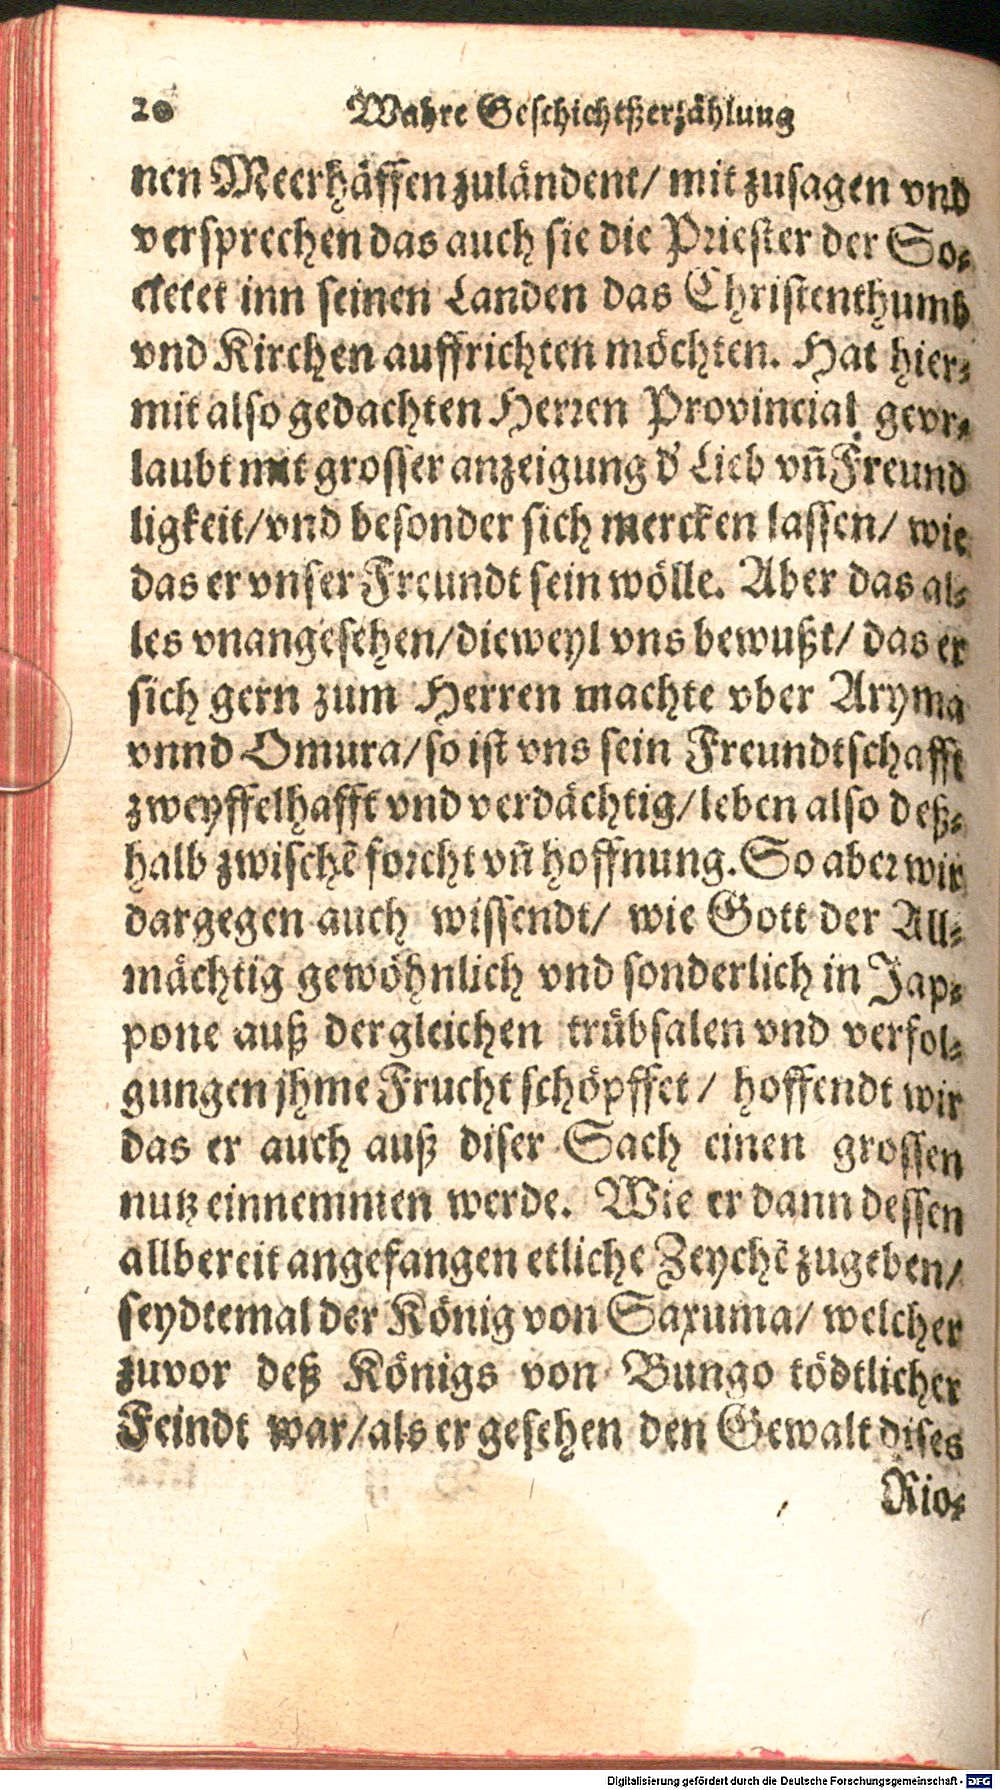 20 Wahre Geschichtßerzählung
nen Meerhäffen zuländent/ mit zusagen vnd
versprechen das auch sie die Priester der So⸗
cietet inn seinen Landen das Christenthumb
vnd Kirchen auffrichten möchten. Hat hier⸗
mit also gedachten Herren Provincial gevr⸗
laubt mit grosser anzeigung d' Lieb vñ Freund
ligkeit/ vnd besonder sich mercken lassen/ wie
das er vnser Freundt sein wölle. Aber das al⸗
les vnangesehen/ dieweyl vns bewußt/ das er
sich gern zum Herren machte vber Aryma
vnnd Omura/ so ist vns sein Freundtschafft
zweyffelhafft vnd verdächtig/ leben also deß⸗
halb zwischē forcht vñ hoffnung. So aber wir
dargegen auch wissendt/ wie Gott der All⸗
mächtig gewöhnlich vnd sonderlich in Jap⸗
pone auß dergleichen trübsalen vnd verfol⸗
gungen jhme Frucht schöpffet/ hoffendt wir
das er auch auß diser Sach einen grossen
nutz einnemmen werde. Wie er dann dessen
allbereit angefangen etliche Zeychē zugeben/
seydtemal der König von Saxuma/ welcher
zuvor deß Königs von Bungo tödtlicher
Feindt war/ als er gesehen den Gewalt dises
Rio⸗
Digitalisierung gefördert durch die Deutsche Forschungsgemeinschaft - DFG